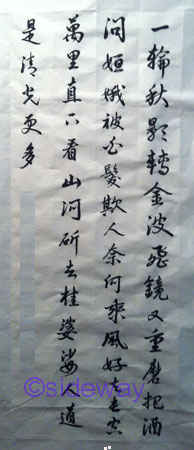 一輪秋影轉金波飛鏡又重磨把酒
問姮娥被白髮欺人奈何乘風好去長空
萬里直下看山河斫去桂婆娑人道
是清光更多
©sideway